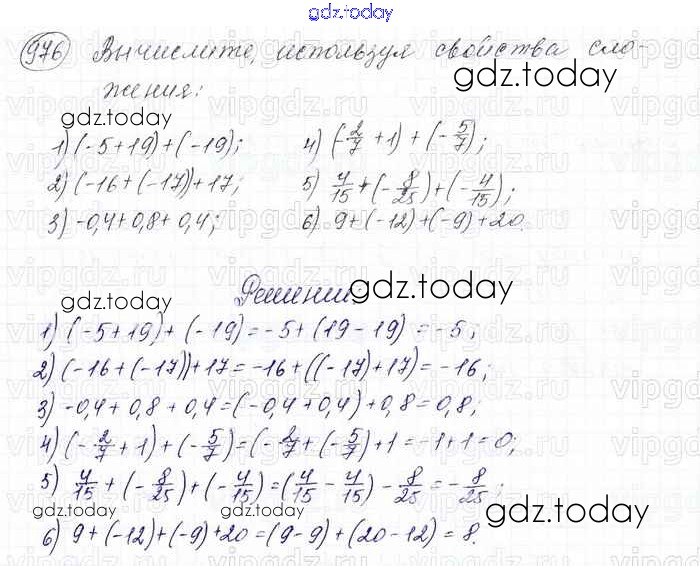 gdz.today
976 Вычислите, используя свойства сло-
жения:
gdz.today
gdz.today
1) (-5+19)+(-19);
2) (-16+(-17))+17;
3) -0,4+0,8+0,4;
4) (-2/7+1)+(-5/7);
5) 4/15+(-8/25)+(-4/15);
6) 9+(-12)+(-9)+20.
Решение.
gdz.today
gdz.today
1) (-5+19)+(-19)=-5+(19-19)=-5;
2) (-16+(-17))+17=-16+((-17)+17)=-16;
3) -0,4+0,8+0,4=(-0,4+0,4)+0,8=0,8;
4) (-2/7+1)+(-5/7)=(-2/7+(-5/7)+1=-1+1=0;
5) 4/15+(-8/25)+(-4/15)=(4/15-4/15)-8/25=-8/25;
gdz.today
gdz.today
6) 9+(-12)+(-9)+20=(9-9)+(20-12)=8.